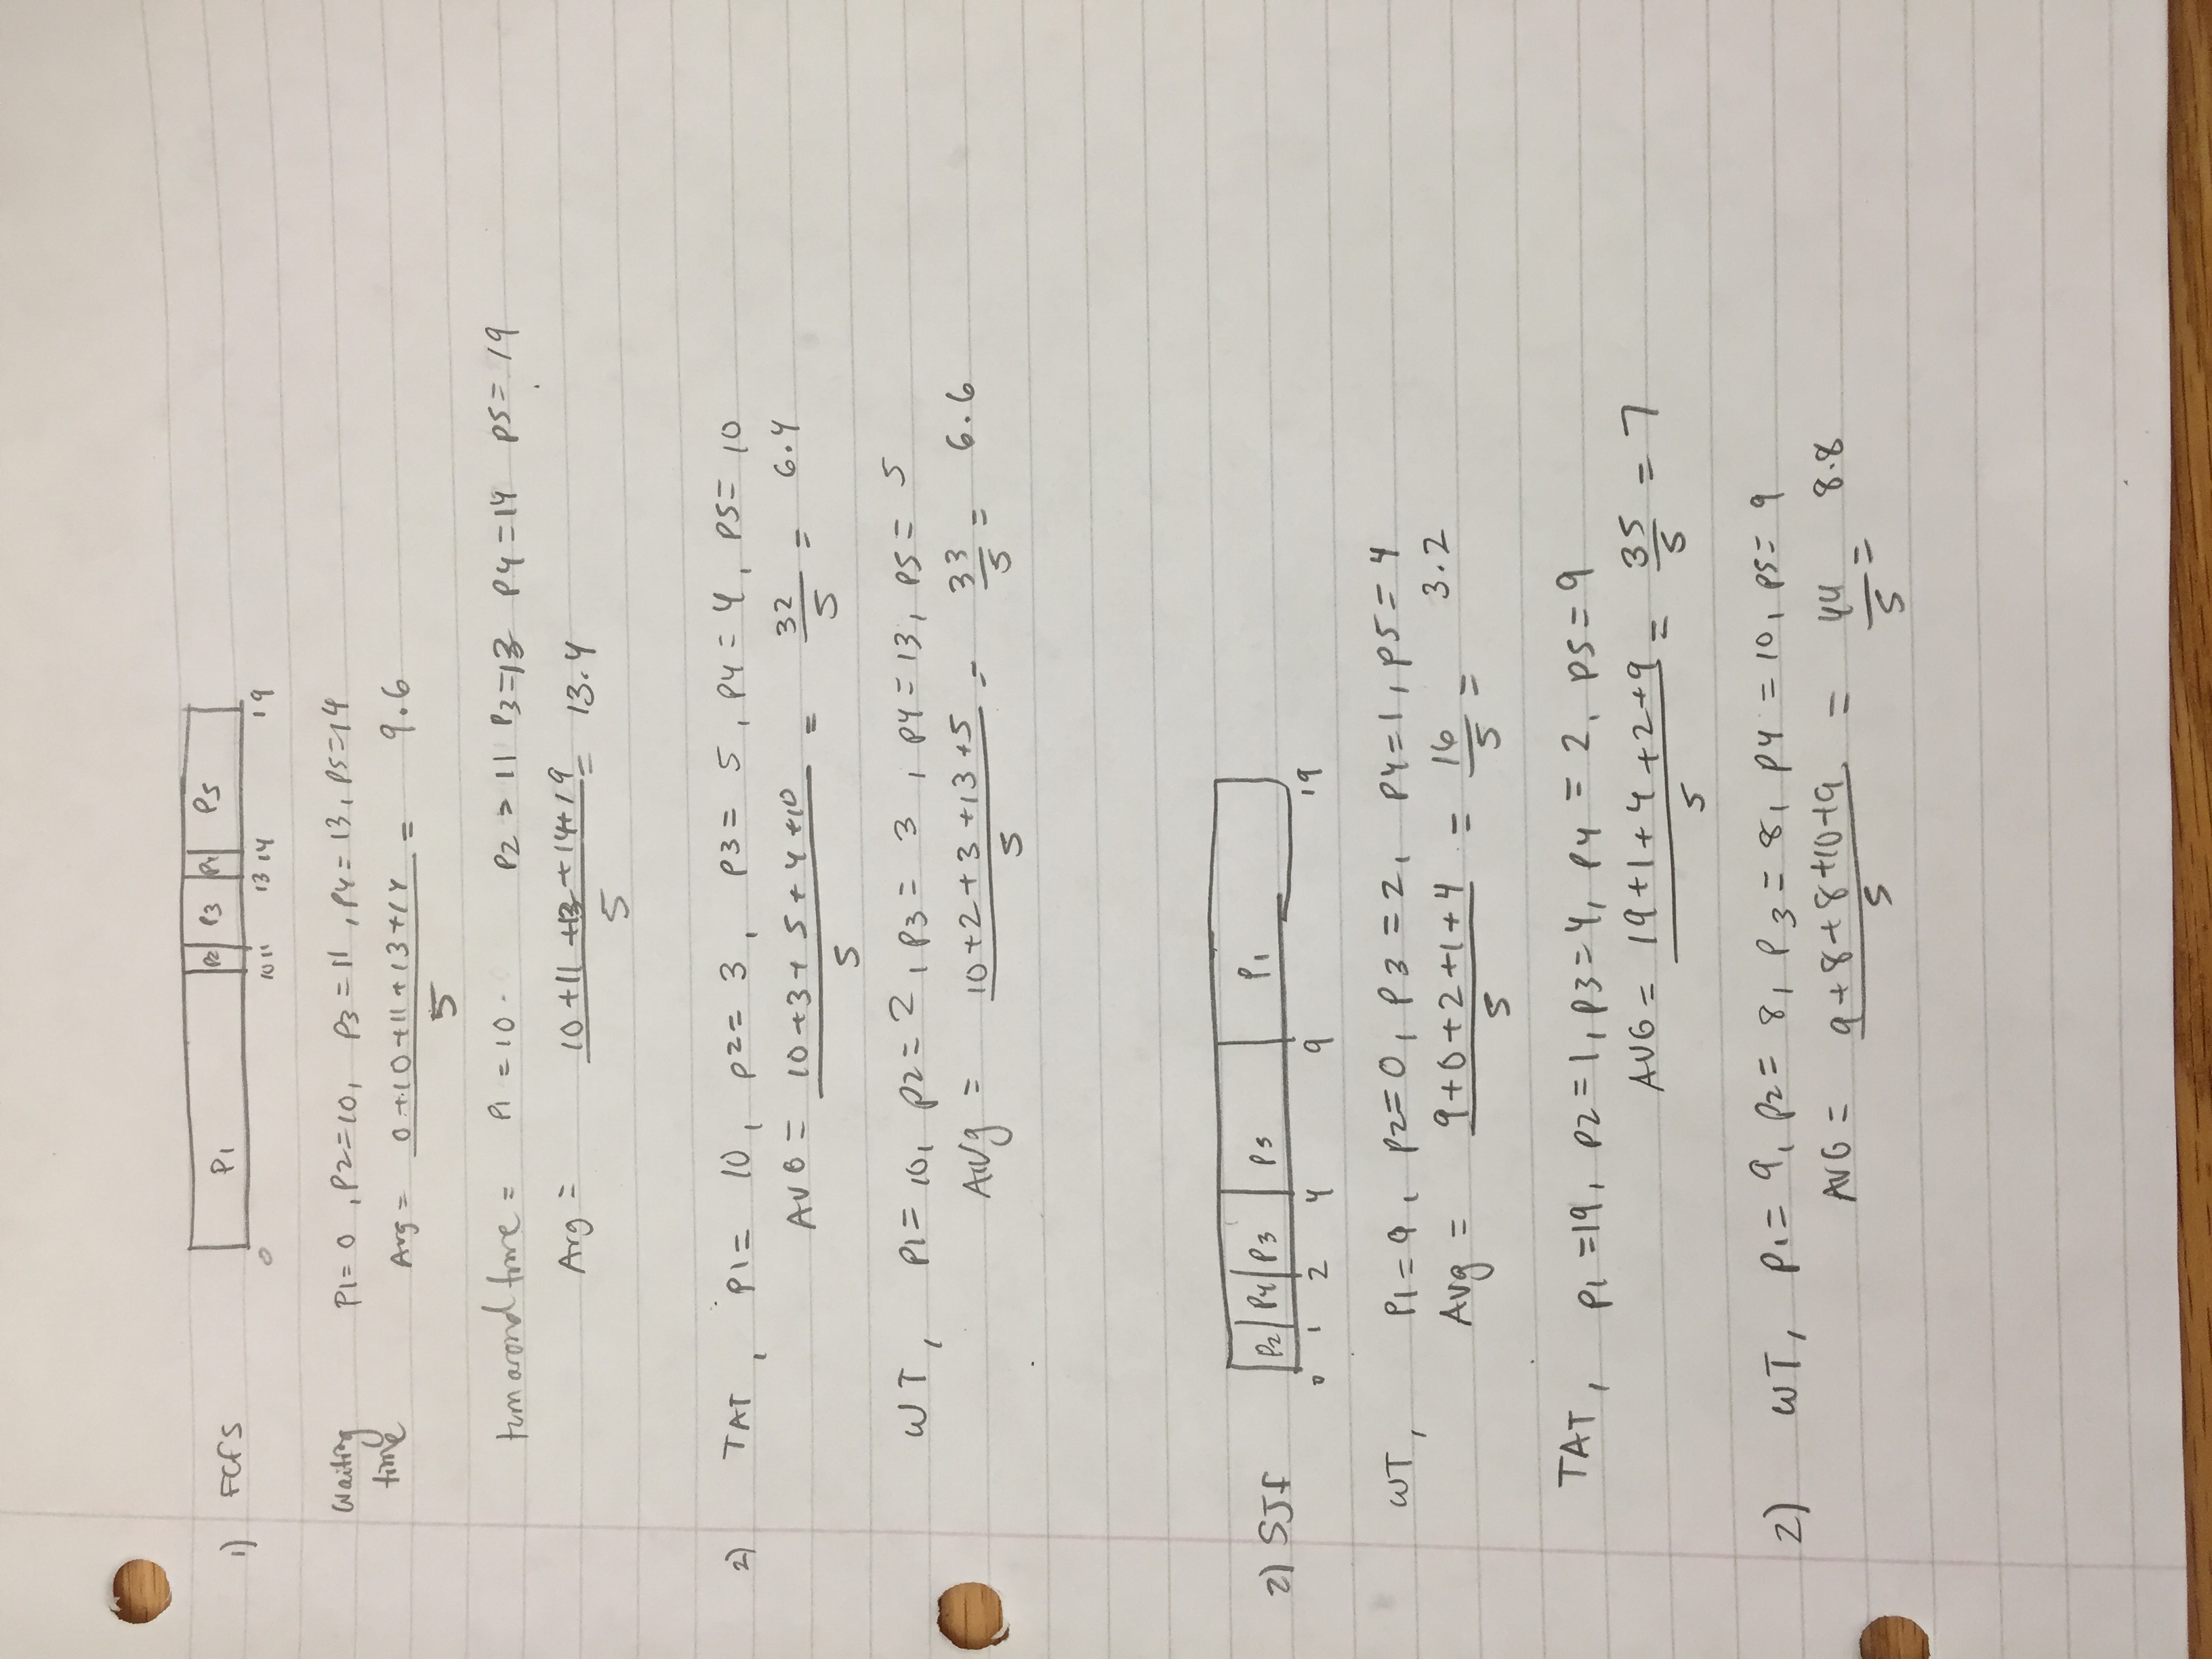 1) FCFS P1 P2 P3 P4 P5
0 10 11 13 14 19
Waiting time P1= 0 , P2=10, P3 = 11 , P4= 13, P5=14
Avg = 0+10+11+13+14 / 5 = 9.6
turnaround time = P1 = 10. P2 = 11 P3=13 P4=14 P5= 19
Avg = 10+11+13+14+19 / 5 = 13.4
2) TAT, P1= 10, P2= 3, P3= 5, P4= 4, P5= 10
AVG = 10+3+5+4+10 / 5 = 32/5 = 6.4
WT, P1= 10, P2= 2, P3= 3, P4= 13, P5= 5
Avg = 10+2+3+13+5 / 5 = 33/5 = 6.6
2) SJf P2 P4 P3 P5 P1
0 1 2 4 9 19
WT, P1=9, P2=0, P3=2, P4=1, P5=4
Avg = 9+0+2+1+4 / 5 = 16/5 = 3.2
TAT, P1=19, P2=1, P3=4, P4=2, P5=9
AVG = 19+1+4+2+9 / 5 = 35/5 = 7
2) WT, P1= 9, P2= 8, P3= 8, P4= 10, P5= 9
AVG = 9+8+8+10+9 / 5 = 44/5 = 8.8